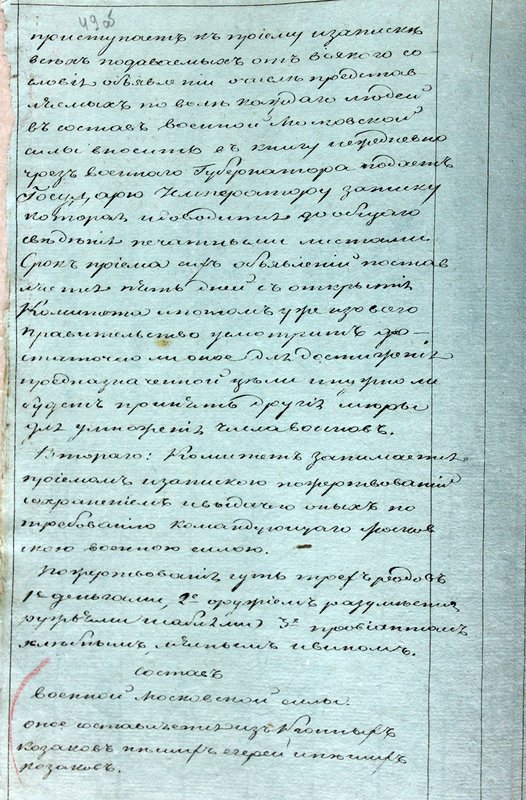 49об
приступаетъ къ пріему и запискѣ
всѣхъ подаваемыхъ отъ всякаго со-
словія объявленіи о числѣ представ-
ляемыхъ по волѣ каждаго людей
въ составъ военной Московской
силы вноситъ въ книгу и ежедневно
чрезъ военнаго Губернатора подаетъ
Государю Императору записку
которая и доводится до общаго
свѣдѣнія печатными листами
Срокъ пріема сихъ объявленій постав
ляется пять дней съ открытія
Комитета и потомъ уже изо всего
правительство усмотритъ до-
статочно ли оное для достиженія
предназначенной цѣли и нужно ли
будетъ принять другія мѣры
для умноженія числа воиновъ.
Втораго: Комитетъ занимается
пріемомъ и запискою пожертвованій
сохраненіемъ и выдачею оныхъ по
требованію командующаго Москов
скою военною силою.
Пожертвованія суть трехъ родовъ
1е деньгами, 2е оружіемъ разумѣется
ружьями и саблями, 3е провіантомъ
хлѣбнымъ, мяснымъ и виномъ.
Составъ
военной Московской силы.
оное составляется изъ конныхъ
козаковъ пѣшихъ егерей и пѣшихъ
козаковъ.